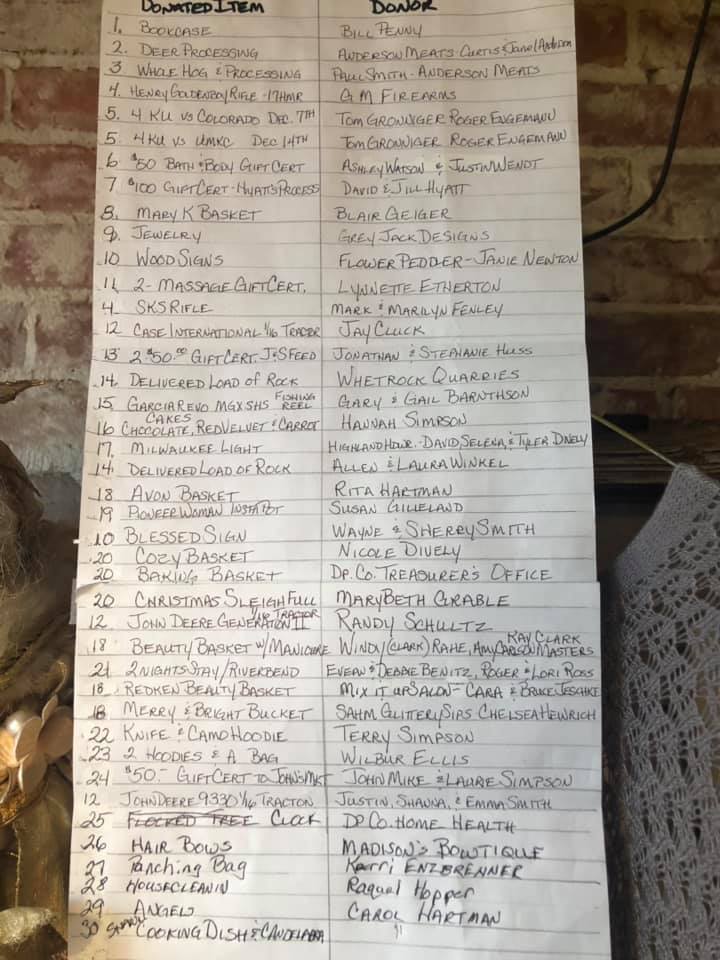 DONATED ITEM DONOR
1. BOOKCASE BILL PENNY
2. DEER PROCESSING ANDERSON MEATS - CURTIS & Janel Anderson
3 WHOLE HOG & PROCESSING PAUL SMITH - ANDERSON MEATS
4. HENRY GOLDENBOY RIFLE - 17HMR G M FIREARMS
5. 4 KU VS COLORADO DEC. 7TH TOM GRONNIGER ROGER ENGEMANN
5. 4 KU VS UMKC DEC 14TH TOM GRONNIGER ROGER ENGEMANN
6 $50 BATH & BODY GIFT CERT ASHLEY WATSON & JUSTIN WENDT
7 $100 GIFT CERT - HYATT'S PROCESS DAVID & JILL HYATT
8. MARY K BASKET BLAIR GEIGER
9. JEWELRY GREY JACK DESIGNS
10 WOOD SIGNS FLOWER PEDDLER - JANIE NEWTON
11 2 - MASSAGE GIFT CERT. LYNNETTE ETHERTON
4 SKS RIFLE MARK & MARILYN FENLEY
12 CASE INTERNATIONAL 1/16 TRACTOR JAY CLUCK
13 2 $50.00 GIFT CERT. J&S FEED JONATHAN & STEPHANIE HUSS
14 DELIVERED LOAD OF ROCK WHETROCK QUARRIES
15 GARCIA REVO MGX SHS FISHING REEL GARY & GAIL BARNTHSON
16 CAKES CHOCOLATE, RED VELVET & CARROT HANNAH SIMPSON
17 MILWAUKEE LIGHT DAVID, SELENA, & TYLER
14 DELIVERED LOAD OF ROCK ALLEN & LAURA WINKEL
18 AVON BASKET RITA HARTMAN
19 PIONEER WOMAN INSTAPOT SUSAN GILLELAND
10 BLESSED SIGN WAYNE & SHERRY SMITH
20 COZY BASKET NICOLE DIVELY
20 BAKING BASKET DP. CO. TREASURER'S OFFICE
20 CHRISTMAS SLEIGH FULL MARYBETH GRABLE
12 JOHN DEERE GENERATION II 1/16 TRACTOR RANDY SCHULTZ
18 BEAUTY BASKET W/ MANICURE WINDY (CLARK) RAHE, AMY CARSON MASTERS KAY CLARK
21 2 NIGHTS STAY / RIVERBEND & DEBBIE BENITZ, ROGER & LORI ROSS
18 REDKEN BEAUTY BASKET MIX IT UP SALON - CARA & BRUCE JESCHKE
18 MERRY & BRIGHT BUCKET SAHM GLITTERY SIPS CHELSEA HEINRICH
22 KNIFE & CAMO HOODIE TERRY SIMPSON
23 2 HOODIES & A BAG WILBUR ELLIS
24 $50.- GIFT CERT TO JOHN'S MKT JOHN MIKE & LAURIE SIMPSON
12 JOHN DEERE 9330 1/16 TRACTOR JUSTIN, SHAUNA, & EMMA SMITH
25 FLOCKED TREE CLOCK DP CO. HOME HEALTH
26 HAIR BOWS MADISON'S BOWTIQUE
27 Punching Bag Karri ENZBRENNER
28 HOUSECLEANIN Raquel Hopper
29 ANGELS CAROL HARTMAN
30 COOKING DISH & CANDELABRA "